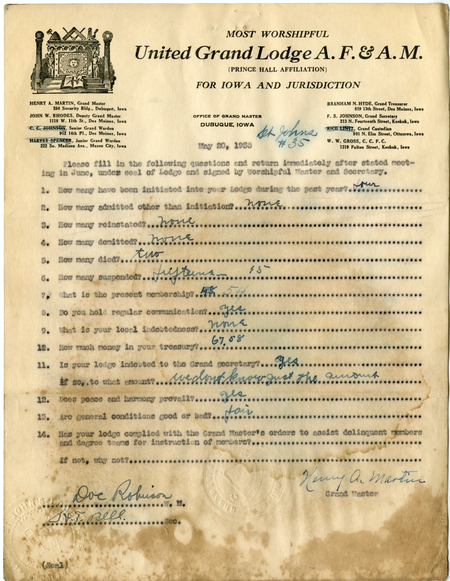 MOST WORSHIPFUL
United Grand Lodge A. F. & A. M.
(PRINCE HALL AFFILIATION)
FOR IOWA AND JURISDICTION
HENRY A. MARTIN, Grand Master
Security Bldg., Dubuque, Iowa
JOHN W. RHODES, Deputy Grand Master
1114 W. 11th St., Des Moines, Iowa
C. C. JOHNSON, Senior Grand Warden
14th Pl., Des Moines, Iowa
HARVEY SPENCER, Junior Grand Warden
222 So. Madison Ave., Mason City, Iowa
OFFICE OF GRAND MASTER
DUBUQUE, IOWA
BRANHAM N. HYDE, Grand Treasurer
819 13th Street, Des Moines, Iowa
F. S. JOHNSON, Grand Secretary
S. Fourteenth Street, Keokuk, Iowa
Grand Custodian
N. Elm Street, Ottumwa, Iowa
W. W. GROSS, C. C. F. C.
1319 Fulton Street, Keokuk, Iowa
May 20, 1933
St Johns
#35
Please fill in the following questions and return immediately after stated meet-
ing in June, under seal of Lodge and signed by Worshipful Master and Secretary.
1. How many have been initiated into your Lodge during the past year? four
2. How many admitted other than initiation? None
3. How many reinstated? None
4. How many demitted? None
5. How many died? two
6. How many suspended? fifteen 15
7. What is the present membership?
8. Do you hold regular communication? yes
9. What is your local indebtedness? None
10. How much money in your treasury? 67.58
11. Is your lodge indebted to the Grand Secretary? yes
If so, to what amount? we dont know just the amount
12. Does peace and harmony prevail? yes
13. Are general conditions good or bad? fair
14. Has your lodge complied with the Grand Master's orders to assist delinquent members
and degree teams for instruction of members?
If not, why not?
Henry A. Martin
Grand Master
Doc Robinson W. M.
Bell Sec.
(Seal)